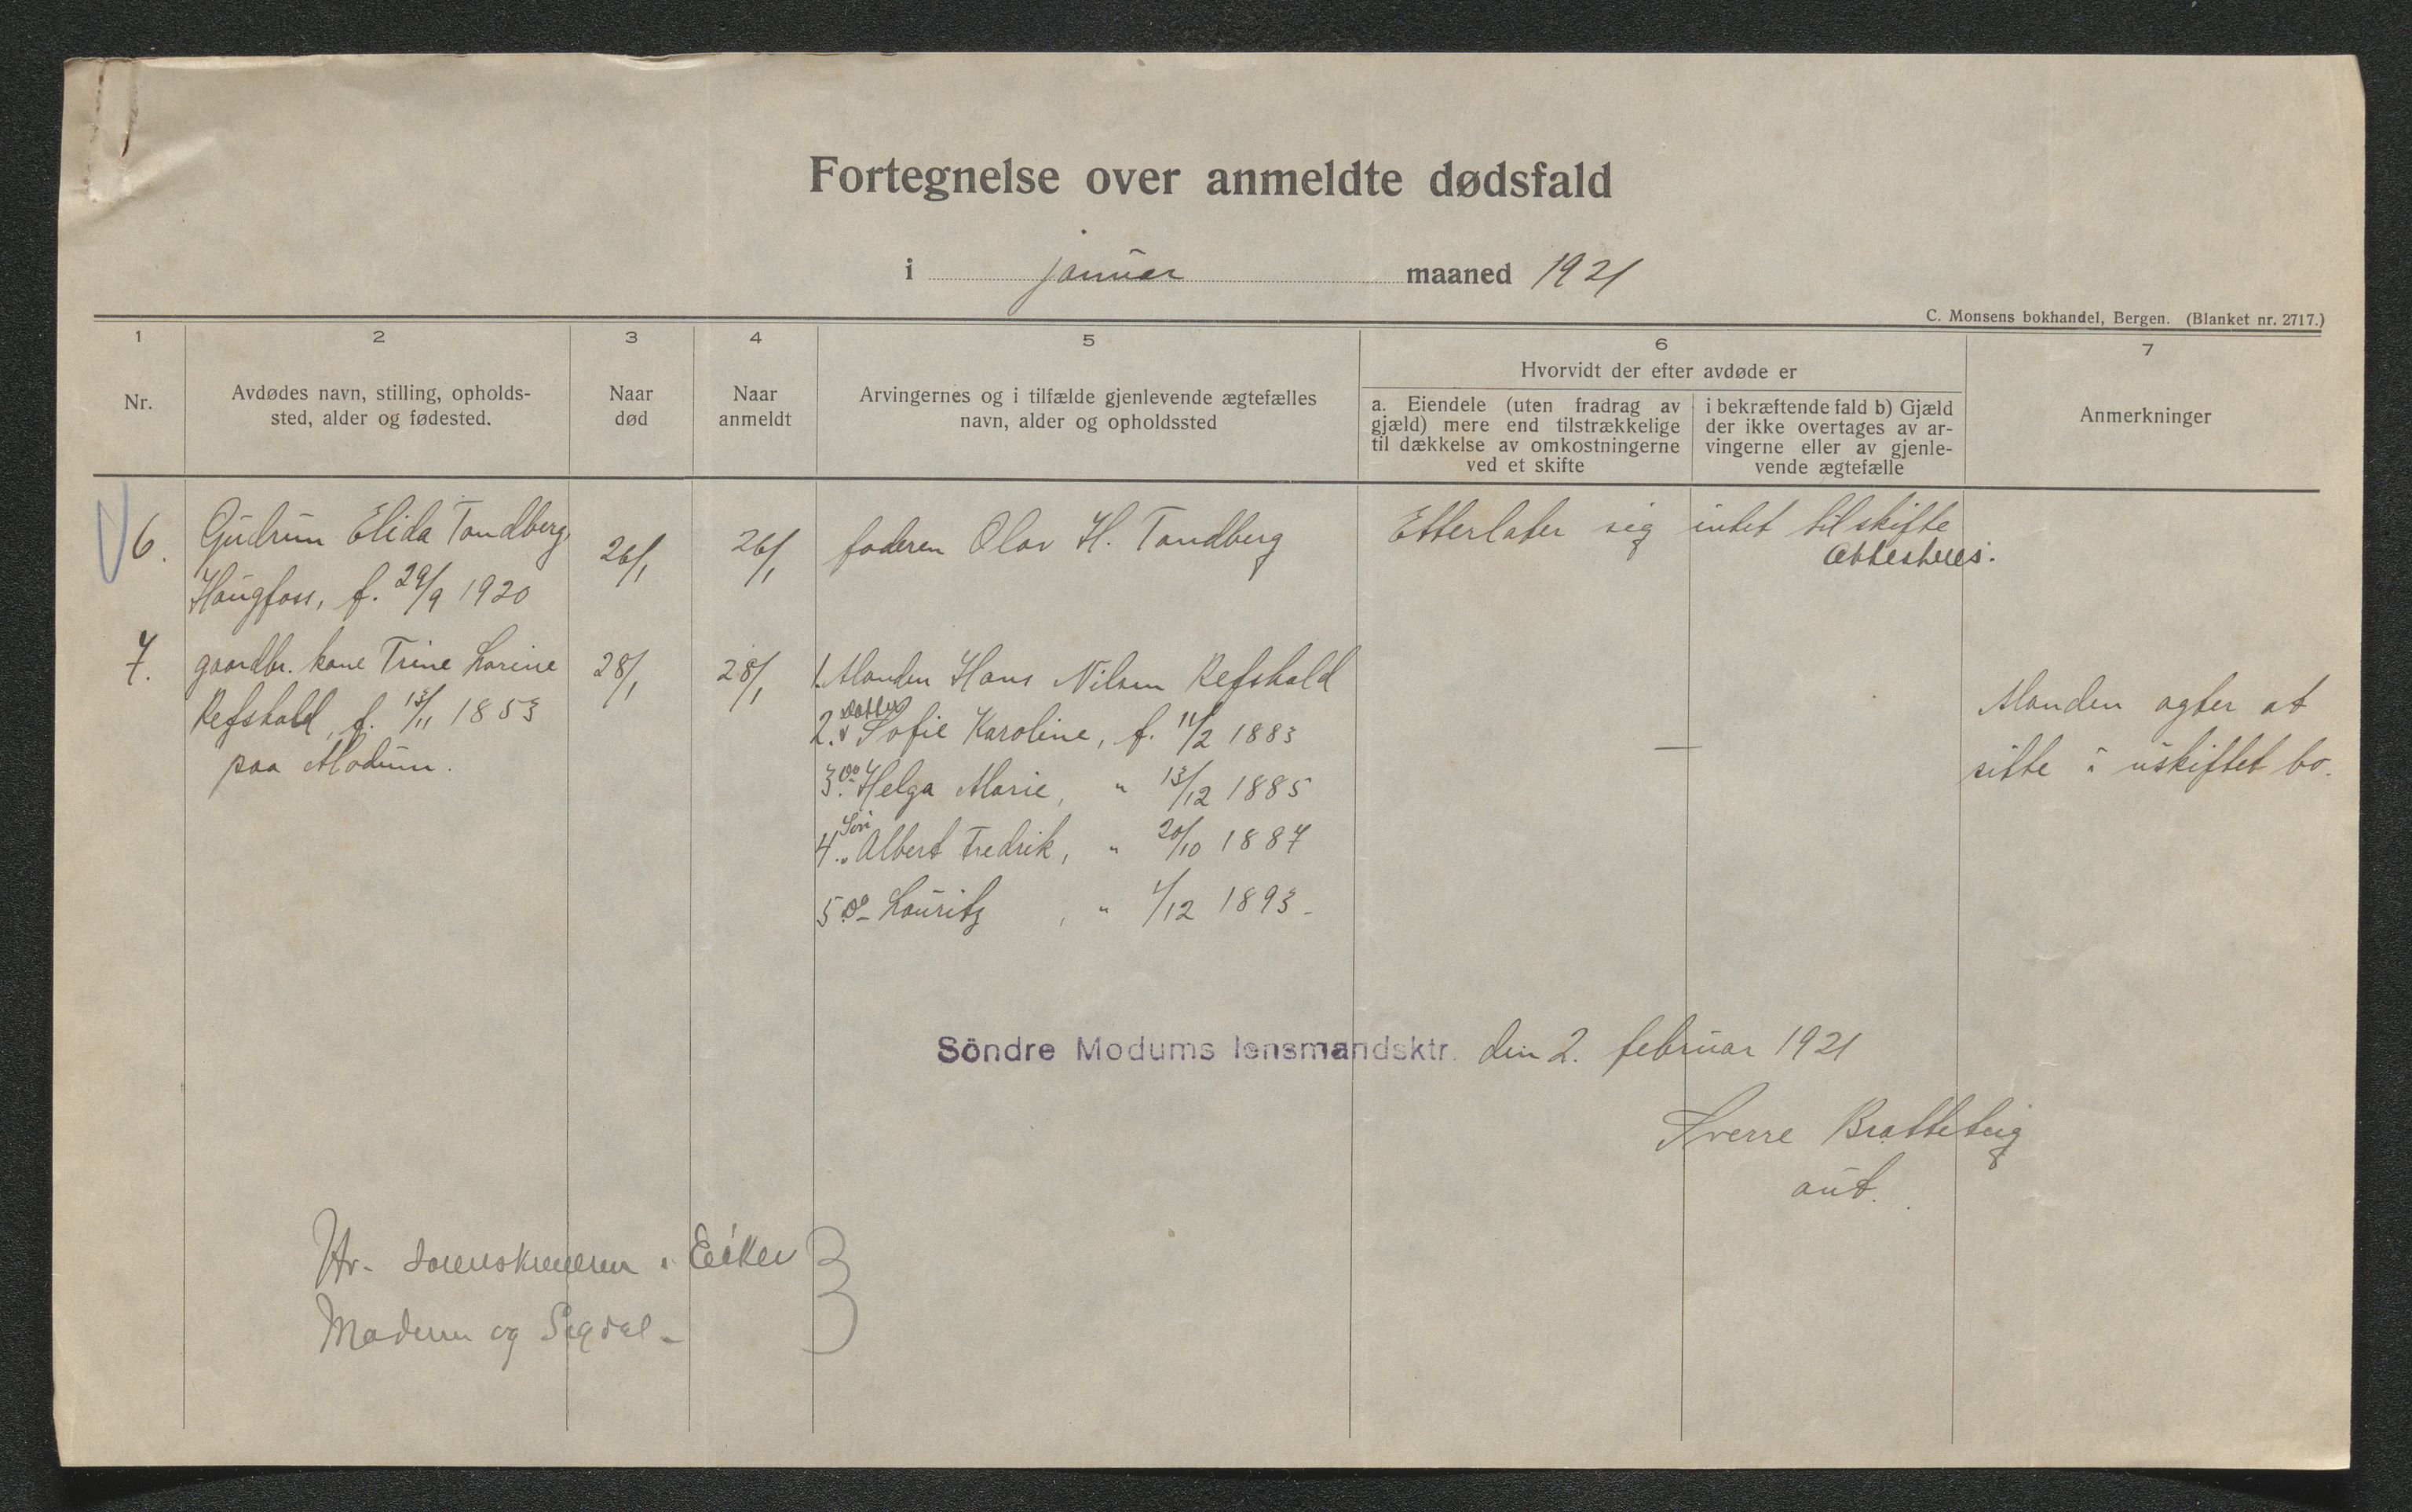 Fortegnelse over anmeldte dødsfald
i januar maaned 1921
C. Monsens bokhandel, Bergen. (Blanket nr. 2717.)
1
Nr.
2
Avdødes navn, stilling, opholds-
sted, alder og fødested.
3
Naar
død
4
Naar
anmeldt
5
Arvingernes og i tilfælde gjenlevende ægtefælles
navn, alder og opholdssted
6
Hvorvidt der efter avdøde er
a. Eiendele (uten fradrag av
gjæld) mere end tilstrækkelige
til dækkelse av omkostningerne
ved et skifte
i bekræftende fald b) Gjæld
der ikke overtages av ar-
vingerne eller av gjenle-
vende ægtefælle
7
Anmerkninger
6.
Gudrun Elida Tandberg,
Haugfoss, f. 29/9 1920
26/1
26/1
faderen Olav H. Tandberg
Etterlater sig intet til skifte
attesteres.
7.
gaardbr. kone Trine Larine
Refshald, f. 13/11 1853
paa Modum.
28/1
28/1
1. Manden Hans Nilsen Refshald
2. datter Sofie Karoline, f. 11/2 1883
3. do Helga Marie, " 13/12 1885
4. Søn Albert Fredrik, " 20/10 1887
5 do - Lauritz , " 4/12 1893 -
—
Manden agter at
sitte i uskiftet bo.
Söndre Modums lensmandsktr. den 2. februar 1921
Sverre Bratteteig
aut.
Hr. sorenskriveren i Eiker
Modum og Sigdal -